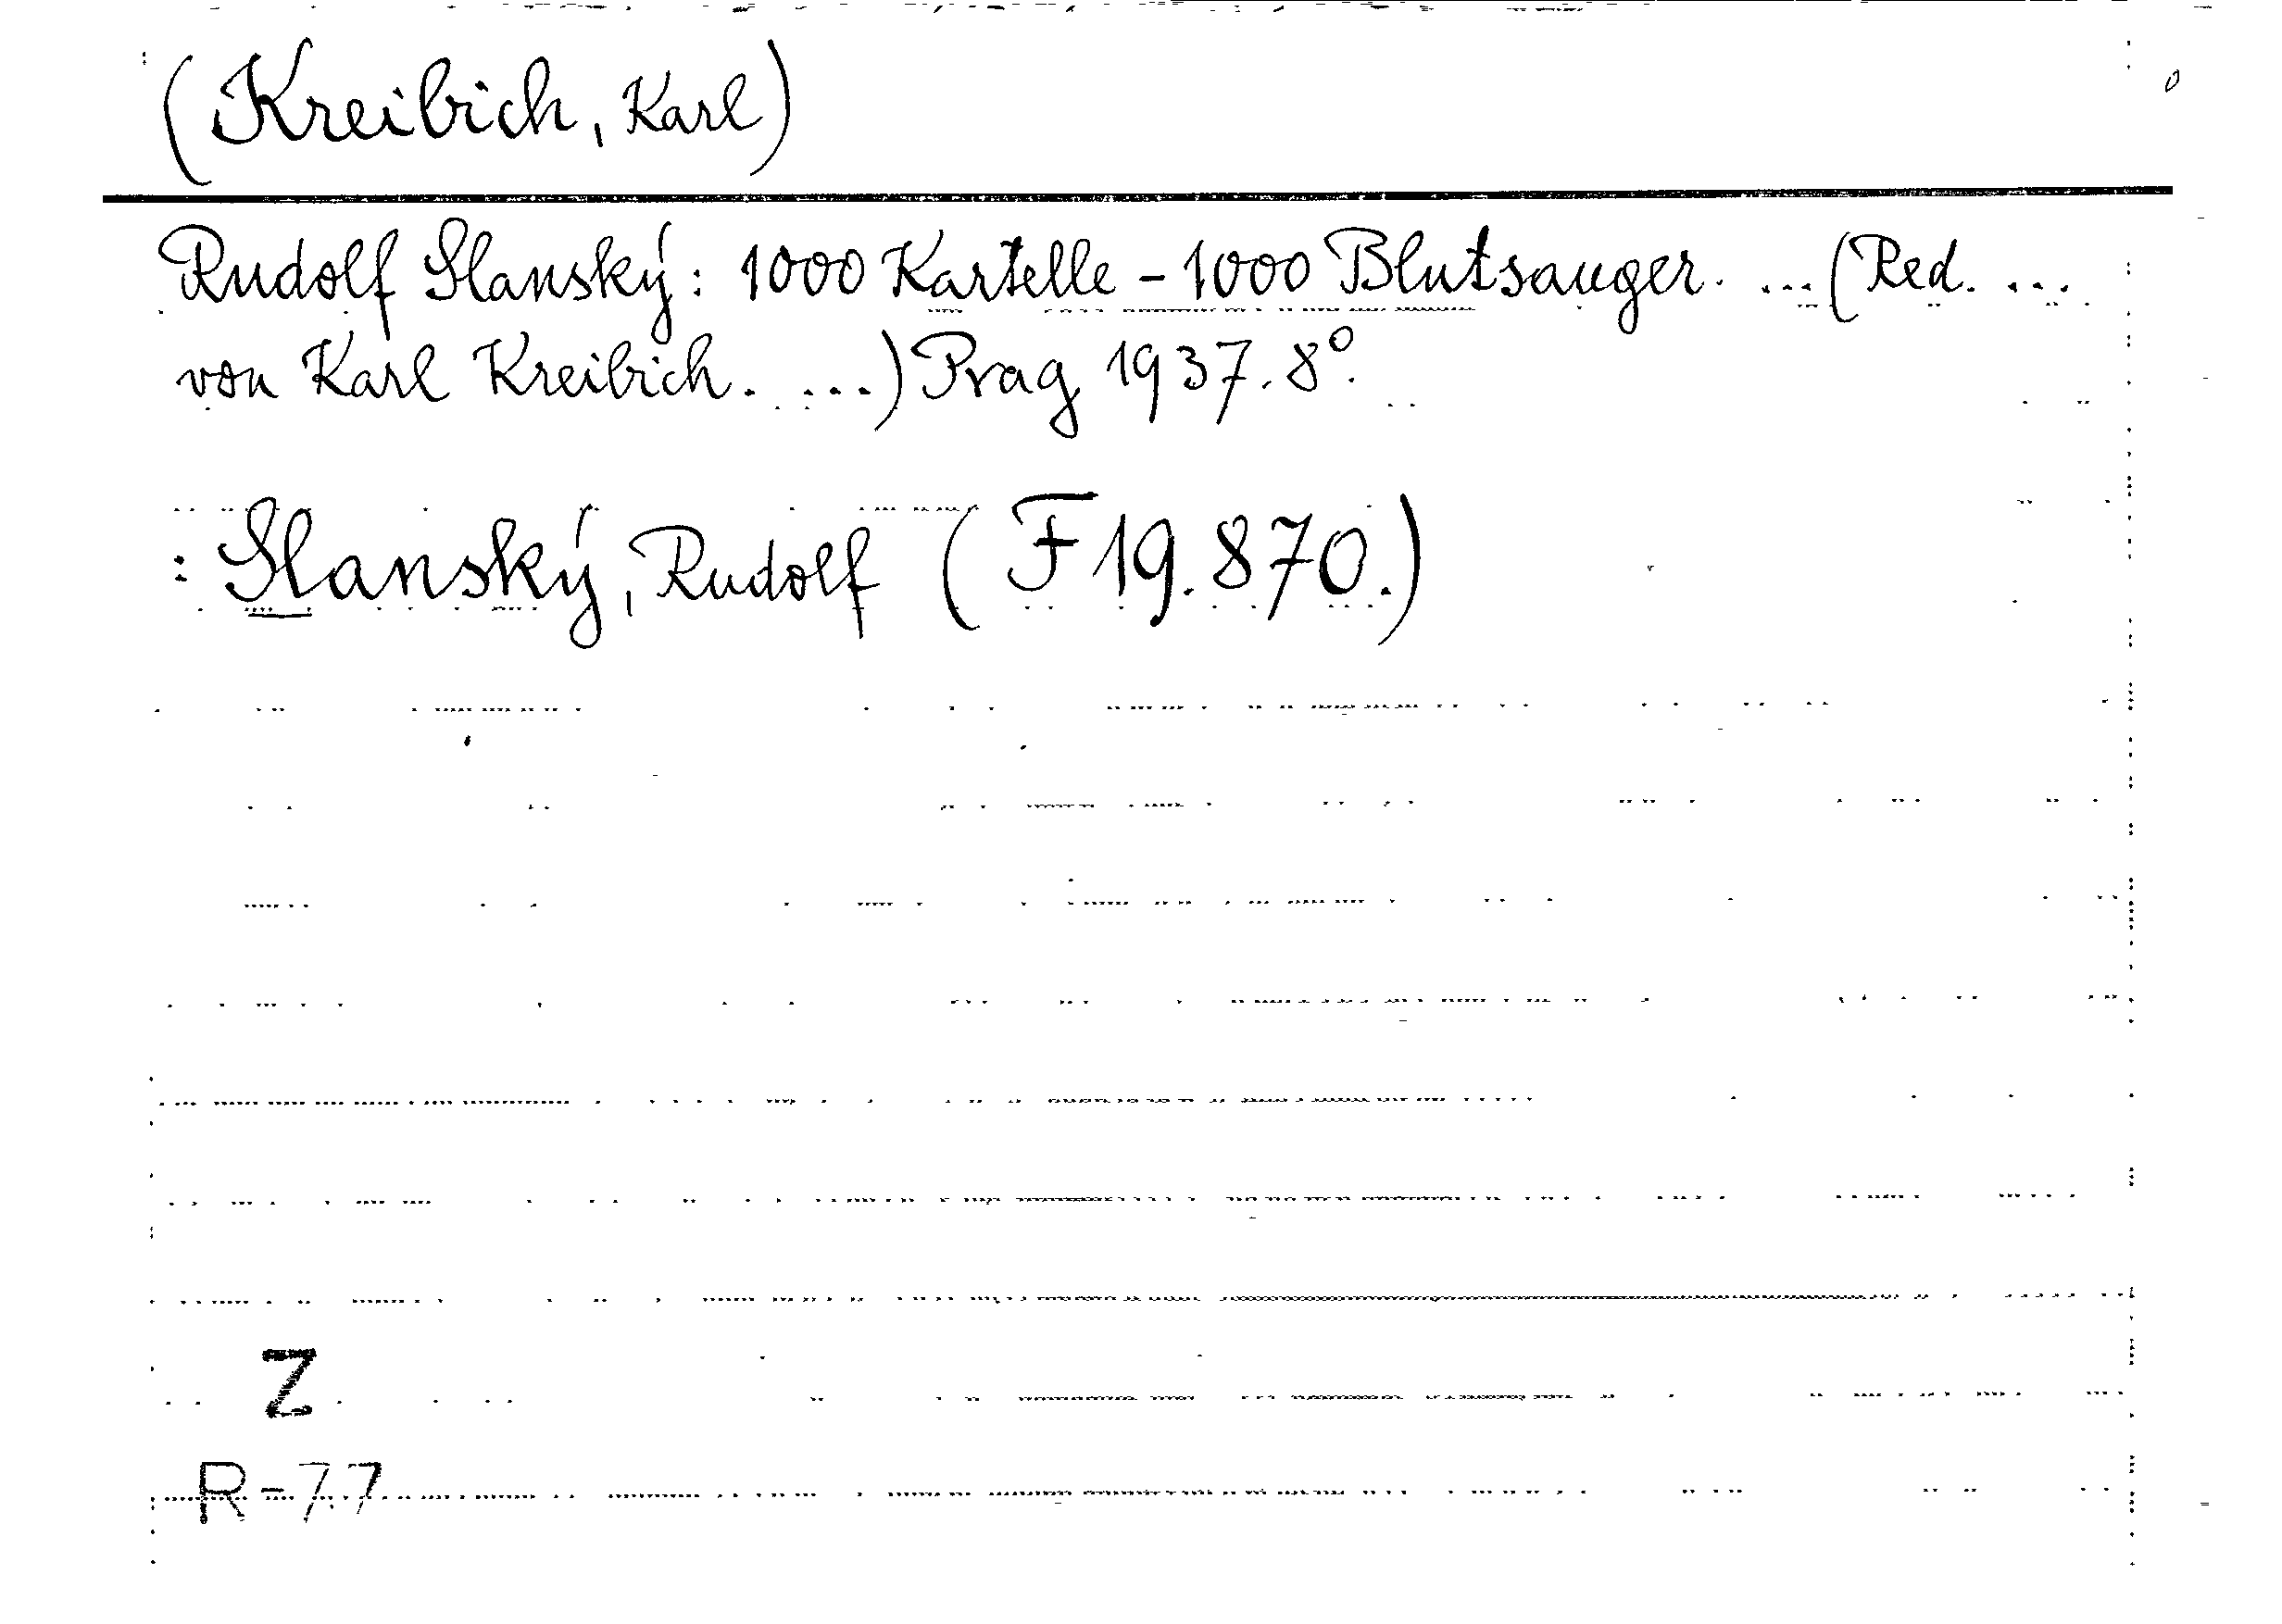 (Kreibich, Karl)
Rudolf Slanský: 1000 Kartelle - 1000 Blutsauger. ... (Red. ...
von Karl Kreibich. ...) Prag 1937. 8º.
: Slanský, Rudolf (F 19.870.)
Z
R-77